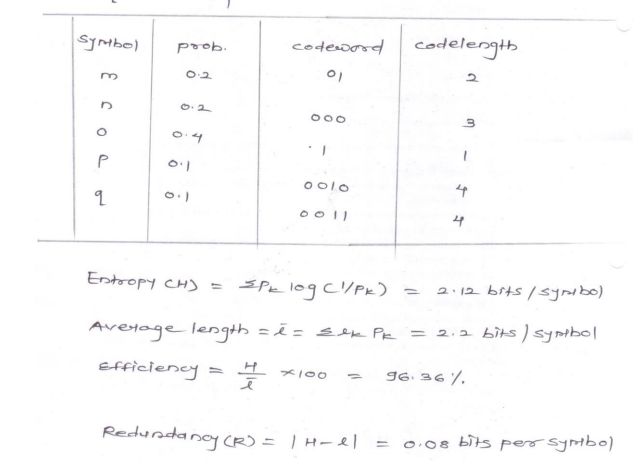 symbol prob. codeword codelength
m 0.2 01 2
n 0.2 000 3
o 0.4 1 1
p 0.1 0010 4
q 0.1 0011 4
Entropy (H) = ΣPk log (1/Pk) = 2.12 bits / symbol
Average length = l̄ = Σ lk Pk = 2.2 bits / symbol
Efficiency = H/l̄ ×100 = 96.36 %.
Redundancy (R) = |H-l| = 0.08 bits per symbol